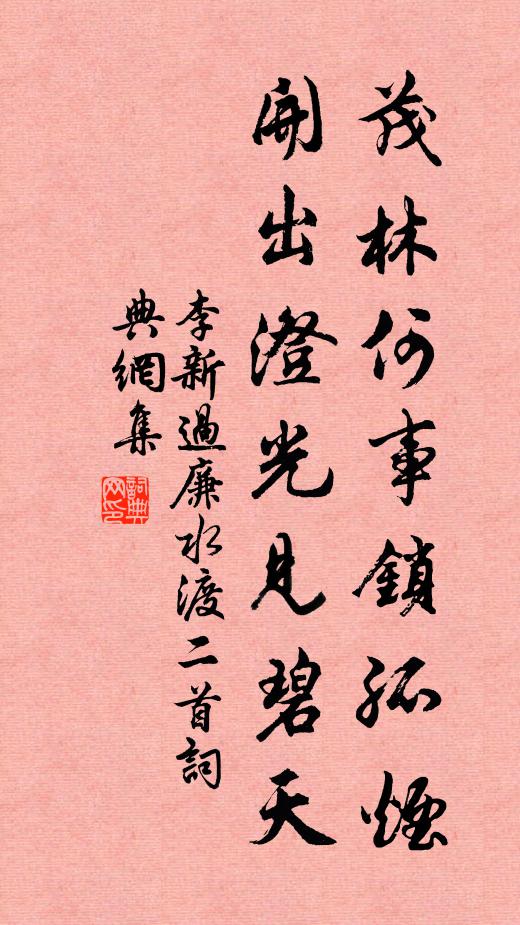 茂林何事鎖孤煙
開出澄光見碧天
李新過廉水渡二首詞
典網集
詞典網印